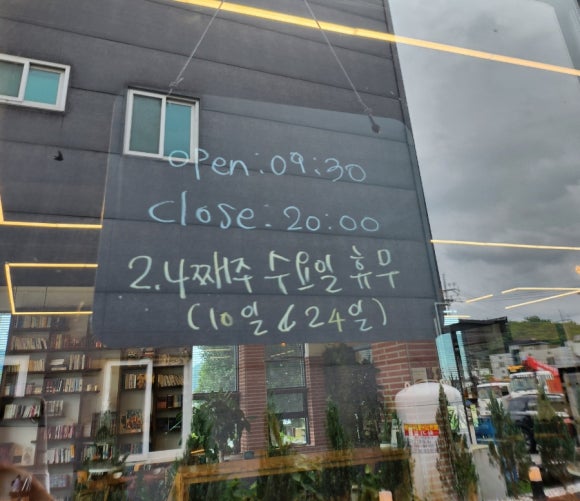 open:09:30
close:20:00
2.4째주 수요일 휴무
(10일 & 24일)